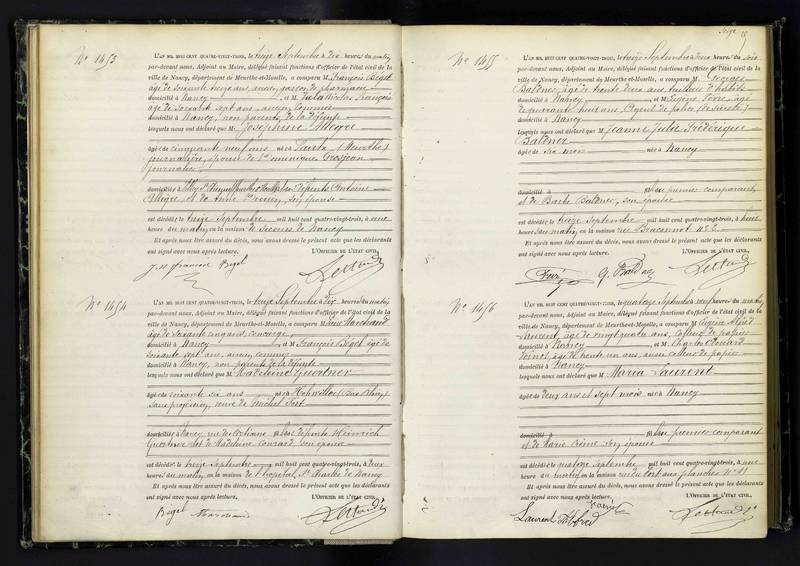 N° 1453
L'AN MIL HUIT CENT QUATRE-VINGT-TROIS, le treize Septembre à dix heures du matin
par-devant nous, Adjoint au Maire, délégué faisant fonctions d'officier de l'état civil de la
ville de Nancy, département de Meurthe-et-Moselle, a comparu M. François Bigel
âgé de soixante treize ans, ancien garçon de pharmacie
domicilié à Nancy et M Nicolas François
âgé de soixante sept ans, ancien commis
domicilié à Nancy, non parents de la défunte
lesquels nous ont déclaré que M Joséphine Allègre
âgée de cinquante neuf ans née à (Meurthe)
journalière, épouse de Dominique Grosjean
journalier
domiciliée à défunts Antoine
Allègre et de Anne son épouse
est décédée treize Septembre mil huit cent quatre-vingt-trois, à une
heure du matin, en la maison de Secours de Nancy
Et après nous être assuré du décès, nous avons dressé le présent acte que les déclarants
ont signé avec nous après lecture. L'OFFICIER DE L'ÉTAT CIVIL,
François Bigel
N° 1454
L'AN MIL HUIT CENT QUATRE-VINGT-TROIS, le treize Septembre à dix heures du matin
par-devant nous, Adjoint au Maire, délégué faisant fonctions d'officier de l'état civil de la
ville de Nancy, département de Meurthe-et-Moselle, a comparu M Marchand
âgé de soixante cinq ans, concierge
domicilié à Nancy et M François Bigel âgé de
soixante sept ans, ancien commis
domicilié à Nancy, non parents de la défunte
lesquels nous ont déclaré que M Madeleine Guertner
âgée de soixante six ans née à (Bas Rhin)
sans profession, veuve de Michel Fort
domiciliée à Nancy rue des Artisans fille de défunts Heinrich
Guertner et de Madeleine Conrard, son épouse
est décédée treize Septembre mil huit cent quatre-vingt-trois, à deux
heures du matin, en la maison de l'hôpital St Charles de Nancy
Et après nous être assuré du décès, nous avons dressé le présent acte que les déclarants
ont signé avec nous après lecture. L'OFFICIER DE L'ÉTAT CIVIL,
Bigel Marchand
N° 1455
L'AN MIL HUIT CENT QUATRE-VINGT-TROIS, le treize Septembre à deux heures du soir
par-devant nous, Adjoint au Maire, délégué faisant fonctions d'officier de l'état civil de la
ville de Nancy, département de Meurthe-et-Moselle, a comparu M Georges
Baldner, âgé de trente deux ans, tailleur d'habits
domicilié à Nancy et M Eugène âgé
de quarante huit ans, Agent de police (de sûreté)
domicilié à Nancy
lesquels nous ont déclaré que M Jeanne Julie Frédérique
Baldner
âgée de six mois née à Nancy
domiciliée à fille du premier comparant
et de Barbe Baldner, son épouse
est décédée treize Septembre mil huit cent quatre-vingt-trois, à huit
heures du matin, en la maison rue Braconnot
Et après nous être assuré du décès, nous avons dressé le présent acte que les déclarants
ont signé avec nous après lecture. L'OFFICIER DE L'ÉTAT CIVIL,
G. Baldner
N° 1456
L'AN MIL HUIT CENT QUATRE-VINGT-TROIS, le quatorze Septembre à neuf heures du matin
par-devant nous, Adjoint au Maire, délégué faisant fonctions d'officier de l'état civil de la
ville de Nancy, département de Meurthe-et-Moselle, a comparu M Eugène Alfred
Laurent, âgé de vingt quatre ans, colleur de papier
domicilié à Nancy et M Charles
âgé de trente un ans, aussi colleur de papier
domicilié à Nancy
lesquels nous ont déclaré que M Maria Laurent
âgée de deux ans et sept mois née à Nancy
domiciliée à fille du premier comparant
et de Marie son épouse
est décédée quatorze Septembre mil huit cent quatre-vingt-trois, à une
heure du matin, en la maison rue du Port aux planches
Et après nous être assuré du décès, nous avons dressé le présent acte que les déclarants
ont signé avec nous après lecture. L'OFFICIER DE L'ÉTAT CIVIL,
Laurent Alfred